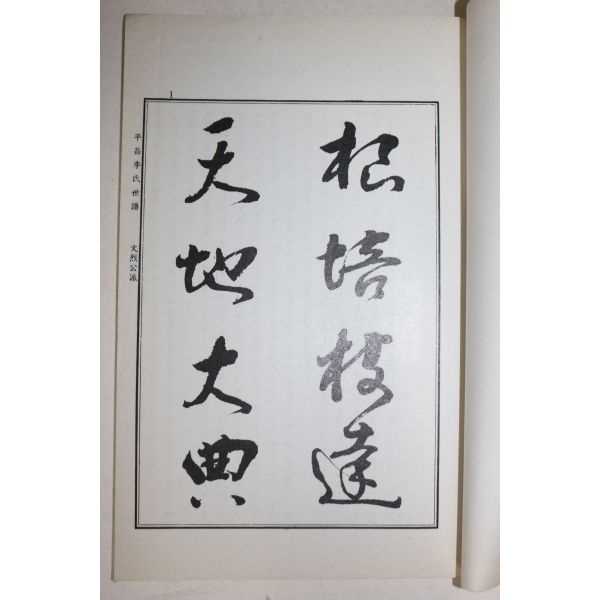 根培枝達
天地大典
平昌李氏世譜 文烈公派